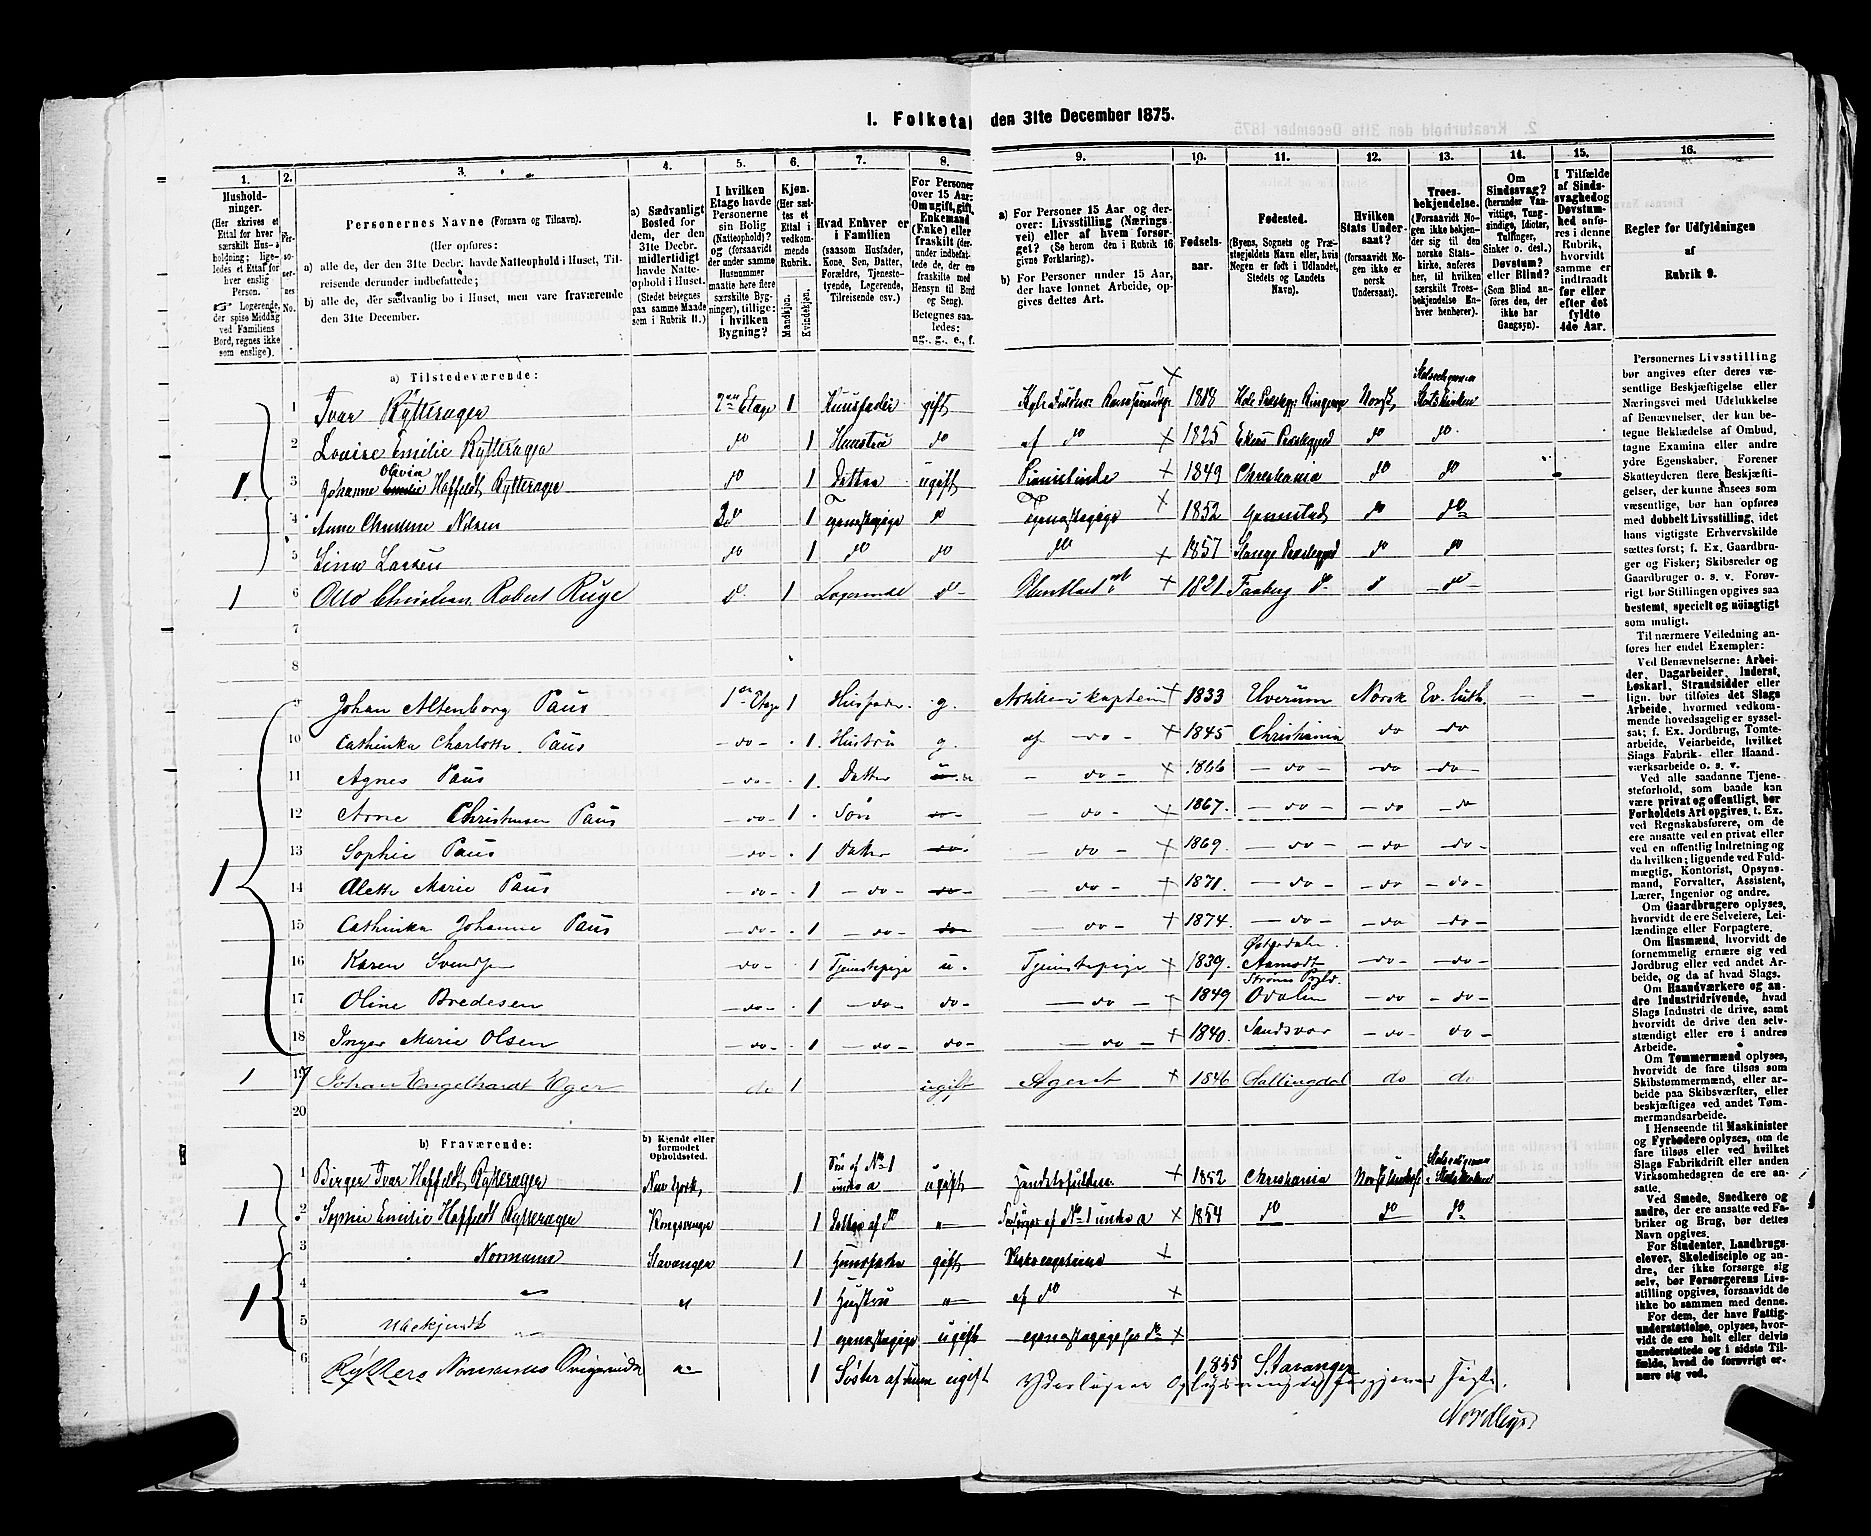 I. Folketal den 31te December 1875.
1. 2. 3. 4. 5. 6. 7. 8. 9. 10. 11. 12. 13. 14. 15. 16.
Husholdninger. (Her skrives et Ettal for hver særskilt Husholdning; ligeledes et Ettal for hver enslig Person. Logerende, der spise Middag ved Familiens Bord, regnes ikke som enslige).
Personernes No.
Personernes Navne (Fornavn og Tilnavn).
(Her opføres:
a) alle de, der den 31te Decbr. havde Natteophold i Huset, Tilreisende derunder indbefattede;
b) alle de, der sædvanlig bo i Huset, men vare fraværende den 31te December.
a) Sædvanligt Bosted for dem, der den 31te Decbr. midlertidigt havde Natteophold i Huset. (Stedet betegnes paa samme Maade som i Rubrik 11.)
I hvilken Etage havde Personerne sin Bolig (Natteophold)? og (forsaavidt der under samme Husnummer maatte høre flere særskilte Bygninger), tillige: i hvilken Bygning?
Kjøn. (Her sættes et Ettal i vedkommende Rubrik. Mandskjøn. Kvindekjøn.
Hvad Enhver er i Familien (saasom Husfader, Kone, Søn, Datter, Forældre, Tjenestetyende, Logerende, Tilreisende osv.)
For Personer over 15 Aar: Om ugift, gift, Enkemand (Enke) eller fraskilt (derunder indbefattede de, der ere fraskilte med Hensyn til Bord og Seng). Betegnes saaledes: ug., g., e., f.
a) For Personer 15 Aar og derover: Livsstilling (Næringsvei) eller af hvem forsørget? (Se herom den i Rubrik 16 givne Forklaring).
b) For Personer under 15 Aar, der have lønnet Arbeide, opgives dettes Art.
Fødselsaar.
Fødested. (Byens, Sognets og Præstegjeldets Navn eller, hvis Nogen er født i Udlandet, Stedets og Landets Navn).
Hvilken Stats Undersaat? (forsaavidt Nogen ikke er norsk Undersaat).
Troesbekjendelse. (Forsaavidt Nogen ikke bekjender sig til den norske Statskirke, anføres her, til hvilken særskilt Troesbekjendelse Enhver henhører).
Om Sindssvag? (herunder Vanvittige, Tungsindige, Idioter, Tullinger, Sinker o. desl.). Døvstum? eller Blind? (Som Blind anføres den, der ikke har Gangsyn).
I Tilfælde af Sindssvaghed og Døvstumhed anføres i denne Rubrik, hvorvidt samme er indtraadt før eller efter det fyldte 4de Aar.
Regler for Udfyldningen af Rubrik 9.
a) Tilstedeværende:
1 Ivar Rytterager 2den Etage 1 Huusfader gift 1818 Hole Norsk Statskirken
2 Louise Emilie Rytterager do 1 Huustru do af do 1825 Ekers Præstegjed do do
1 3 Johanne Olavia Haffeldt Rytterager do 1 Datter ugift 1849 Christiania do do
4 Anne Nilsen do 1 1852 do do
5 Lina Larsen do 1 do do do 1857 Stange Præstegjed do do
1 6 Otto Christian Robert Ruge 1 Logerende 1821 Faaberg do do
7
8
9 Johan Altenborg Paus 1ste Etage 1 Husfader g. Artillerikaptein 1833 Elverum Norsk Ev. luth. — —
10 Cathinka Charlotte Paus — do — 1. Hustru g. af — do — 1845 Christiania do do
11 Agnes Paus — do — 1. Datter — do — 1866 — do — — do — — do —
12 Arne Christensen Paus — do — 1 Søn — do — 1867. — do — — do — do
13 Sophie Paus — do — 1 Datter do — do — 1869. — do — — do — do —
1 14 Alette Marie Paus — do — 1 — do — do — do — 1871. — do — — do — — do —
15 Cathinka Johanne Paus — do — 1 — do — do — do — 1874. — do — — do — do —
16 Karen Svendsen do — 1 Tjenstepige u. Tjenstepige 1839. Aamodt Østerdalen — do — — do —
17 Oline Bredesen — do — 1 — do — do — — do — 1849 Strøms Prgld. Odalen — do — — do —
18 Inger Marie Olsen — do — 1 — do — do — — do — 1840. Sandsvær — do — do —
1 19 Johan Engelhardt Eger do 1 ugift Agent 1846 Hallingdal do do
20
b) Fraværende:
b) Kjendt eller formodet Opholdssted.
1 Birger Ivar Haffeldt Rytterager New York, 1 Søn af No 1 under a ugift 1852 Christiania Norsk Statskirken
1 2 Sophie Emilie Haffeldt Rytterager Kongsvinger 1 Datter af do " Forsørges af No 1 under a 1854 do do do
3 Normann Stavanger 1 Huusfader gift
1 4 " " 1 Hustru " af do
5 Ubekjendt 1 ugift
6 Normanns " 1 Søster af ugift 1855 Stavanger
Yderligere Oplysninger
Personernes Livsstilling bør angives efter deres væsentlige Beskjæftigelse eller Næringsvei med Udelukkelse af Benævnelser, der kun betegne Beklædelse af Ombud, tagne Examina eller andre ydre Egenskaber. Forener Skatteyderen flere Beskjæftigelser, der kunne ansees som væsentlige, bør han opføres med dobbelt Livsstilling, idet hans vigtigste Erhvervskilde sættes først; f. Ex. Gaardbruger og Fisker; Skibsreder og Gaardbruger o. s. v. Forøvrigt bør Stillingen opgives saa bestemt, specielt og nøiagtigt som muligt.
Til nærmere Veiledning anføres her endel Exempler:
Ved Benævnelserne: Arbeider, Dagarbeider, Inderst, Løskarl, Strandsidder eller lign. bør tilføies det Slags Arbeide, hvormed vedkommende hovedsagelig er sysselsat; f. Ex. Jordbrug, Tomtearbeide, Veiarbeide, hvilket Slags Fabrik- eller Haandværksarbeide o. s. v.
Ved alle saadanne Tjenesteforhold, som baade kan være privat og offentligt, bør Forholdets Art opgives, t. Ex. ved Regnskabsførere, om de ere ansatte ved en privat eller ved en offentlig Indretning og da hvilken; lignende ved Fuldmægtig, Kontorist, Opsynsmand, Forvalter, Assistent, Lærer, Ingeniør og andre.
Om Gaardbrugere oplyses, hvorvidt de ere Selveiere, Leilændinge eller Forpagtere.
Om Husmænd, hvorvidt de fornemmelig ernære sig ved Jordbrug eller ved andet Arbeide, og da af hvad Slags.
Om Haandværkere og andre Industridrivende, hvad Slags Industri de drive, samt hvorvidt de drive den selvstændigt eller ere i andres Arbeide.
Om Tømmermænd oplyses, hvorvidt de fare tilsøs som Skibstømmermænd, eller arbeide paa Skibsværfter, eller beskjæftiges ved andet Tømmermandsarbeide.
I Henseende til Maskinister og Fyrbødere oplyses, om de fare tilsøs eller ved hvilket Slags Fabrikdrift eller anden Virksomhedsgren de ere ansatte.
Ved Smede, Snedkere og andre, der ere ansatte ved Fabriker og Brug, bør dettes Navn opgives.
For Studenter, Landbrugselever, Skoledisciple og andre, der ikke forsørge sig selv, bør Forsørgerens Livsstilling opgives, forsaavidt de ikke bo sammen med denne.
For dem, der have Fattigunderstøttelse, oplyses, hvorvidt de ere helt eller delvis understøttede og i sidste Tilfælde, hvad de forøvrigt ernære sig ved.